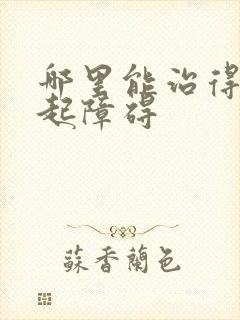 那里能治得
起障碍
蘇香蘭色